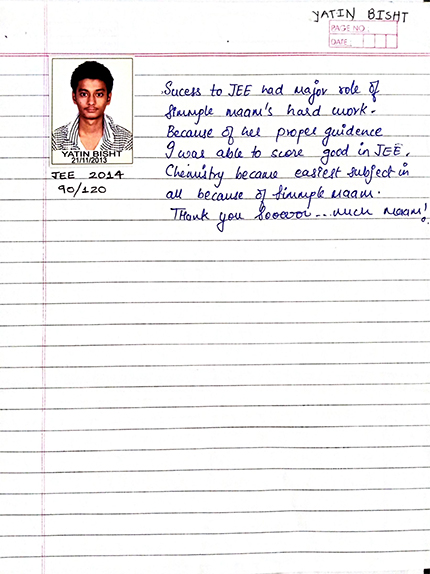 YATIN BISHT
PAGE NO.:
DATE:
YATIN BISHT
21/11/2013
JEE 2014
90/120
Sucess to JEE had major role of
Simmple maam's hard work.
Because of her proper guidence
I was able to score good in JEE.
Chemistry became easiest subject in
all because of Simmple maam.
Thank you Sooooo...much maam!